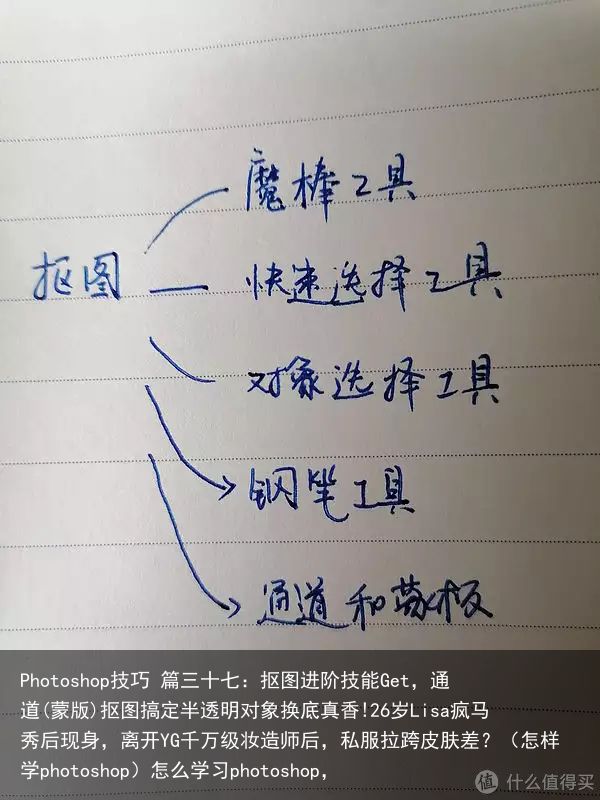 魔棒工具
抠图
快速选择工具
对象选择工具
钢笔工具
通道和蒙板
Photoshop技巧 篇三十七：抠图进阶技能Get，通
道(蒙版)抠图搞定半透明对象换底真香!26岁Lisa疯马
秀后现身，离开YG千万级妆造师后，私服拉跨皮肤差？（怎样
学photoshop）怎么学习photoshop,
值 什么值得买